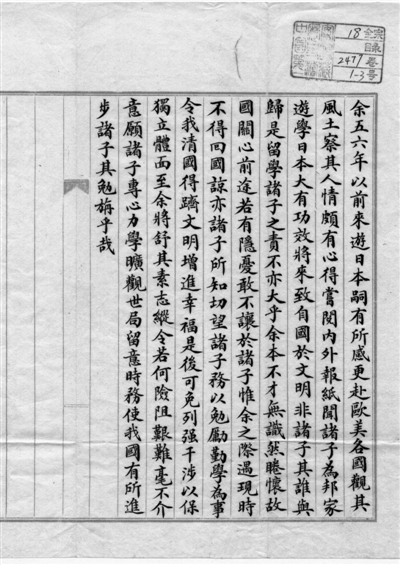 宗 18
錄
2477 卷
1-3 号
余五六年以前來遊日本嗣有所感更赴歐美各國觀其
風土察其人情頗有心得嘗閱內外報紙聞諸子為邦家
遊學日本大有功效將來致自國於文明非諸子其誰與
歸是留學諸子之責不亦大乎余本不才無識然睠懷故
國關心前途若有隱憂敢不讓於諸子惟余之際遇現時
不得回國諒亦諸子所知切望諸子務以勉勵勤學為事
令我清國得躋文明增進幸福是後可免列强干涉以保
獨立體面至余將舒其素志縱令若何險阻艱難毫不介
意願諸子專心力學曠觀世局留意時務使我國有所進
步諸子其勉旃乎哉